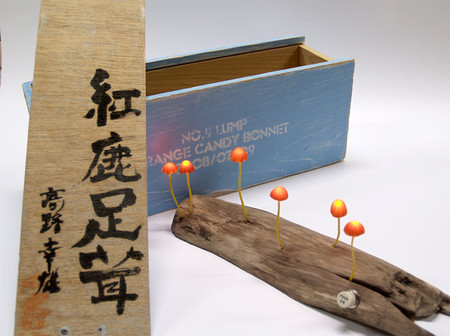 紅鹿足茸
高野幸雄
NO.9 LUMP
RANGE CANDY BONNET
08/07/09
PUSH
ON